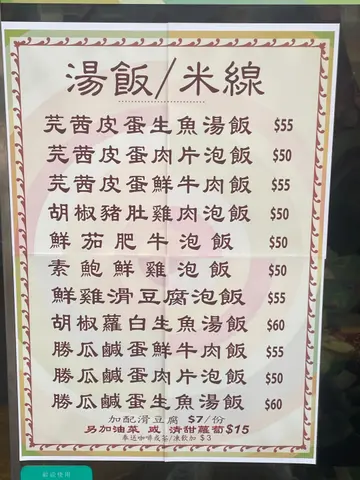 湯飯/米線
芫茜皮蛋生魚湯飯 $55
芫茜皮蛋肉片泡飯 $50
芫茜皮蛋鮮牛肉飯 $55
胡椒豬肚雞肉泡飯 $50
鮮茄肥牛泡飯 $50
素鮑鮮雞泡飯 $50
鮮雞滑豆腐泡飯 $55
胡椒蘿白生魚湯飯 $60
勝瓜鹹蛋鮮牛肉飯 $55
勝瓜鹹蛋肉片泡飯 $50
勝瓜鹹蛋生魚湯飯 $60
加配滑豆腐 $7/份
另加油菜 或 清甜蘿蔔$15
奉送咖啡或茶/凍飲加 $3